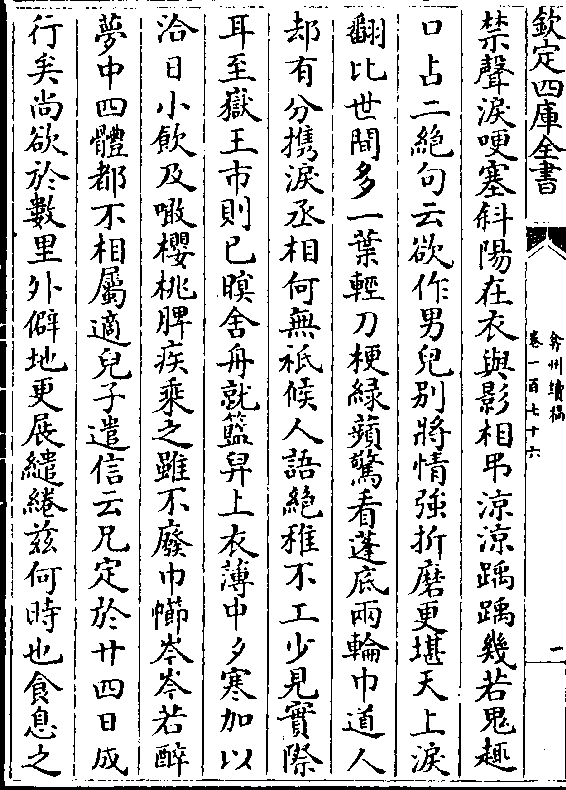 欽定四庫全書
弇州續稿
卷一百七十六
一
禁聲淚哽塞斜陽在衣與影相弔涼涼踽踽幾若鬼趣
口占二絶句云欲作男兒别將情強折磨更堪天上淚
翻比世間多一葉輕刀梗緑蘋驚看蓬底兩輪巾道人
却有分攜淚丞相何無祇候人語絶稚不工少見實際
耳至嶽王市則已暝舍舟就籃舁上衣薄中夕寒加以
洽日小飲及噉櫻桃脾疾乘之雖不廢巾櫛岑岑若醉
夢中四體都不相屬適兒子遣信云凡定於廿四日成
行矣尚欲於數里外僻地更展繾綣兹何時也食息之